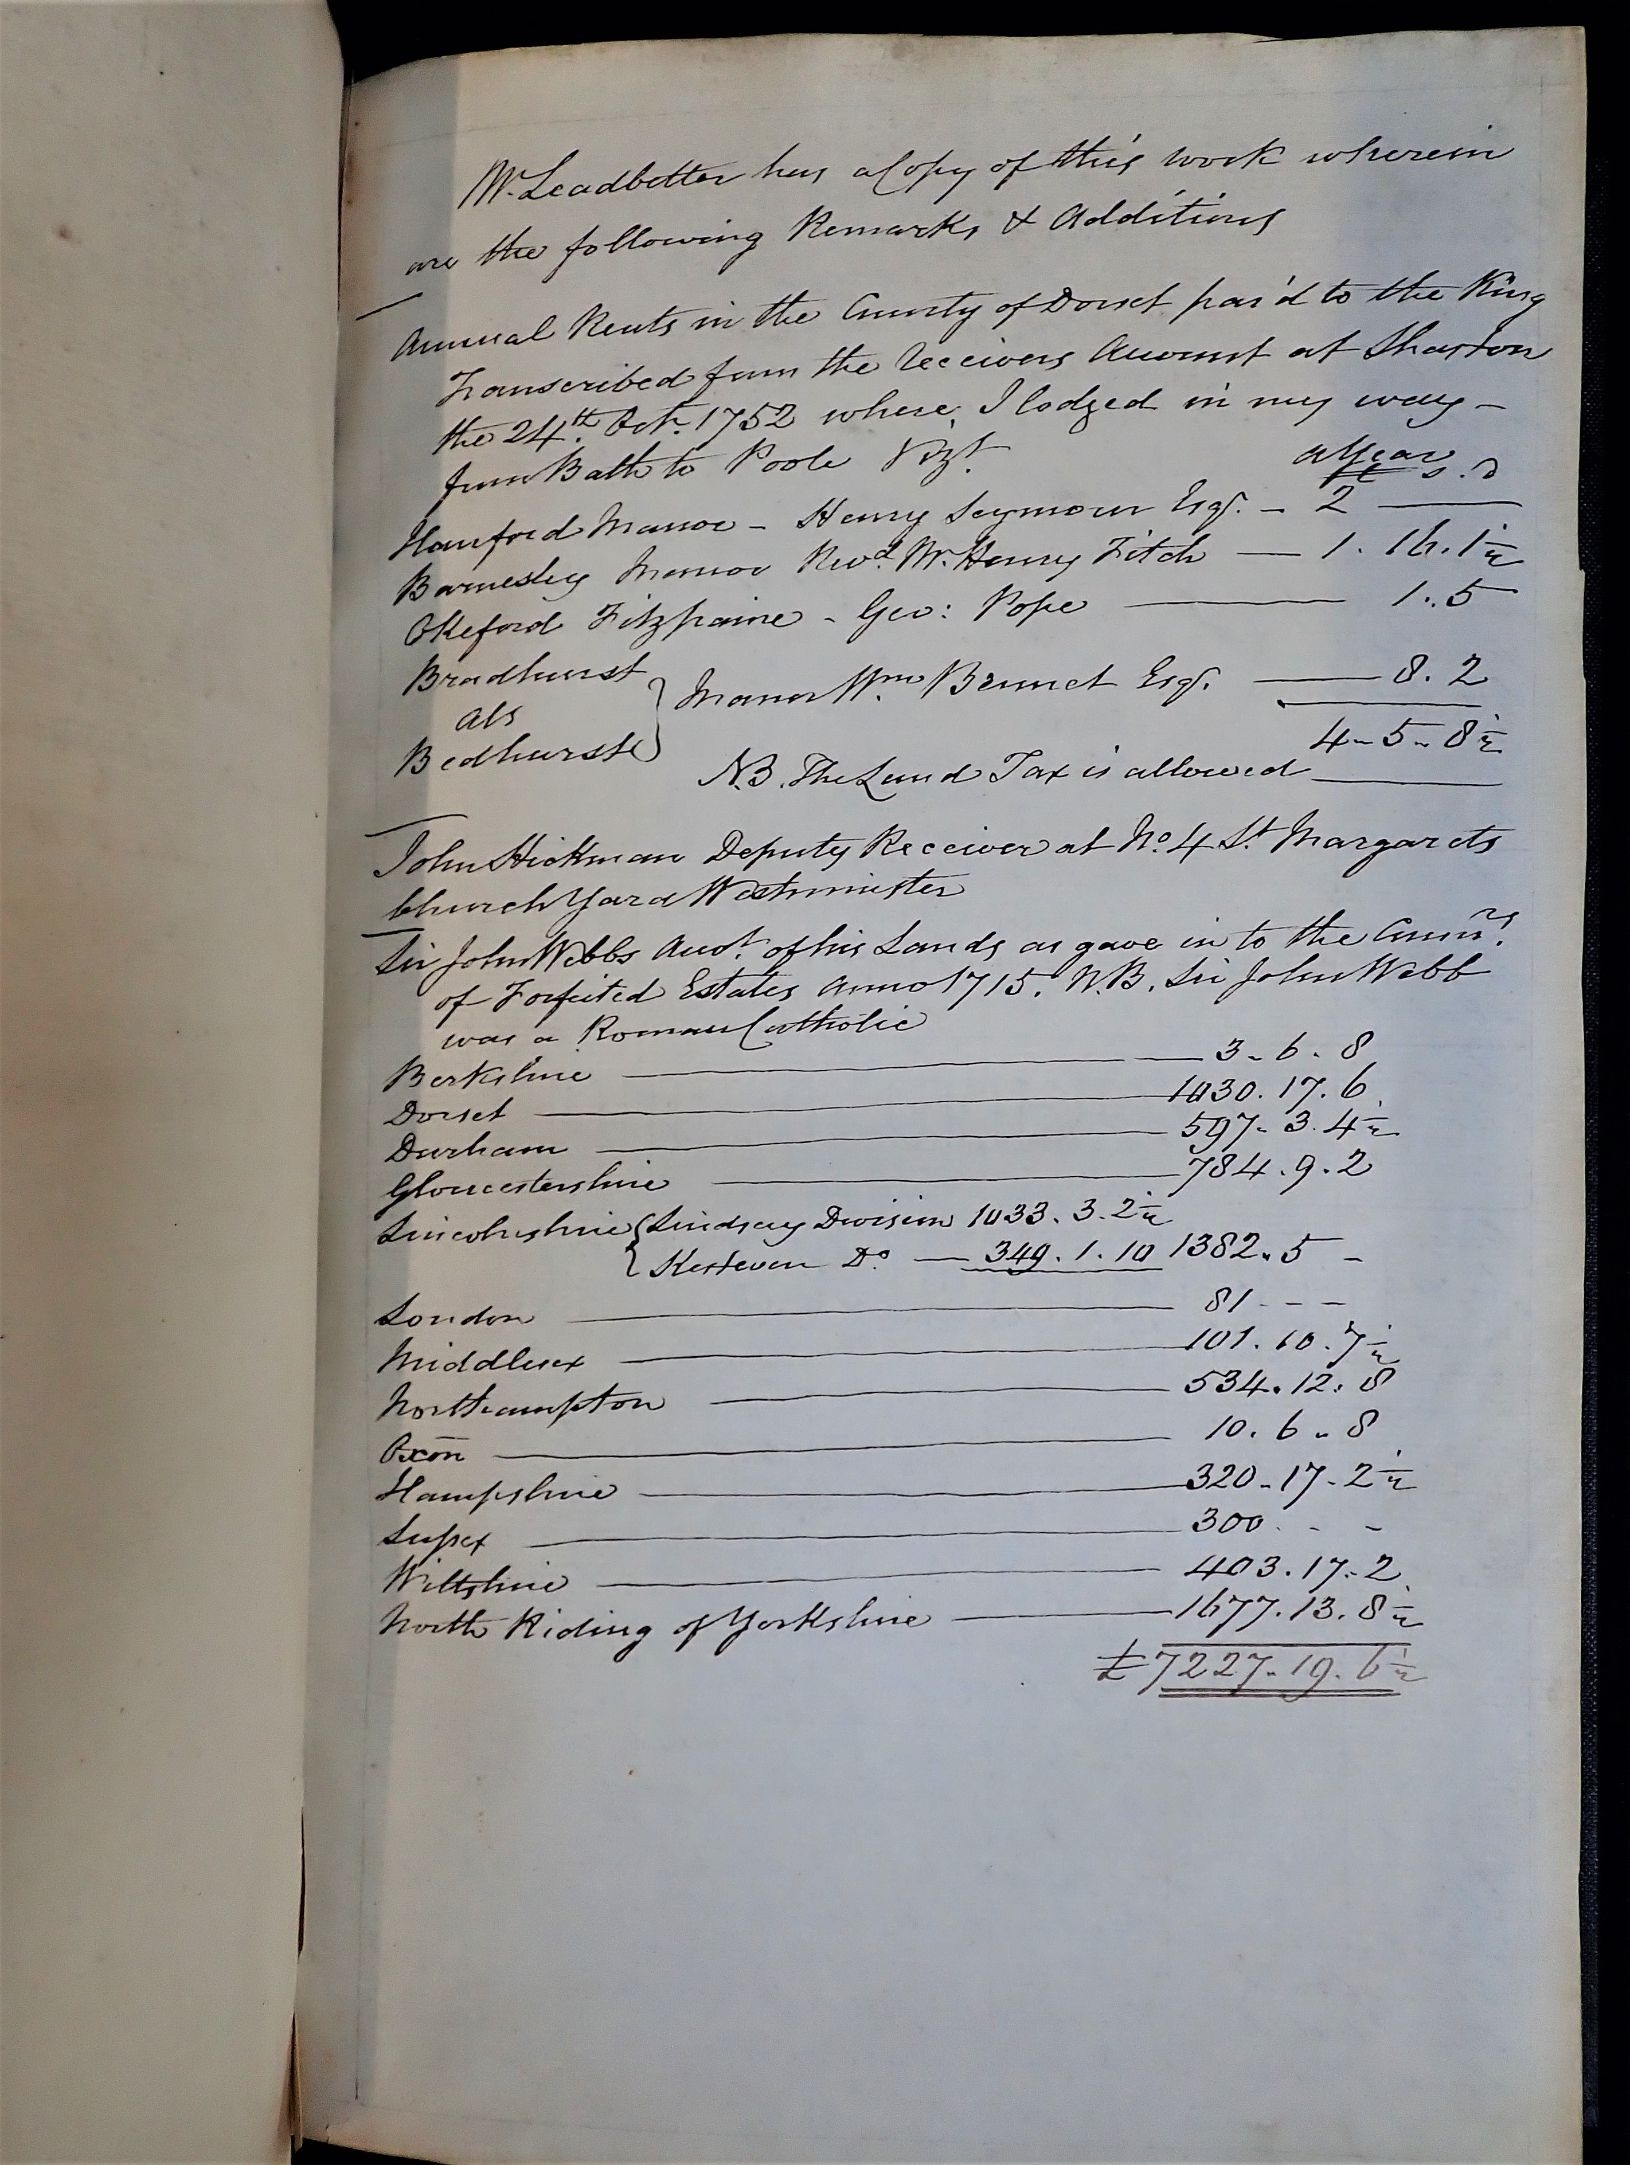 Mr. Leadbetter has a Copy of this work wherein
are the following Remarks & Additions
Annual Rents in the County of Dorset pai'd to the King
Transcribed from the Receivers Account at Shaston
the 24th. Octr. 1752 where I lodged in my way -
from Bath to Poole Vizt.
a Year
£ s. D
Hanford Manor - Henry Seymour Esqr. - 2
Barnesley Manor Revd. Mr. Henry Fitch — 1. 16. 1½
Okeford Fitzpaine - Geo: Pope — 1. 5
Bradhurst
als
Bedhurste } Manor Wm. Bennet Esqr. — 8. 2
4 - 5 - 8½
N.B. The Land Tax is allowed
John Hickman Deputy Receiver at No. 4 St. Margarets
Church Yard Westminster
Sir John Webbs Accot. of his Lands as gave in to the Commrs.
of Forfeited Estates Anno 1715. N.B. Sir John Webb
was a Roman Catholic
Berkshire — 3 - 6 - 8
Dorset — 1030. 17. 6
Durham — 597 - 3. 4½
Gloucestershire — 784. 9. 2
Lincolnshire { Lindsey Division 1033. 3. 2½
{ Kesteven Do. — 349. 1. 10 1382. 5 -
London — 81 - - -
Middlesex — 101. 10. 7½
Northampton — 534. 12. 8
Oxōn — 10. 6 - 8
Hampshire — 320 - 17 - 2½
Sussex — 300. - -
Wiltshire — 403. 17. 2
North Riding of Yorkshire — 1677. 13. 8½
£7227 - 19. 6½